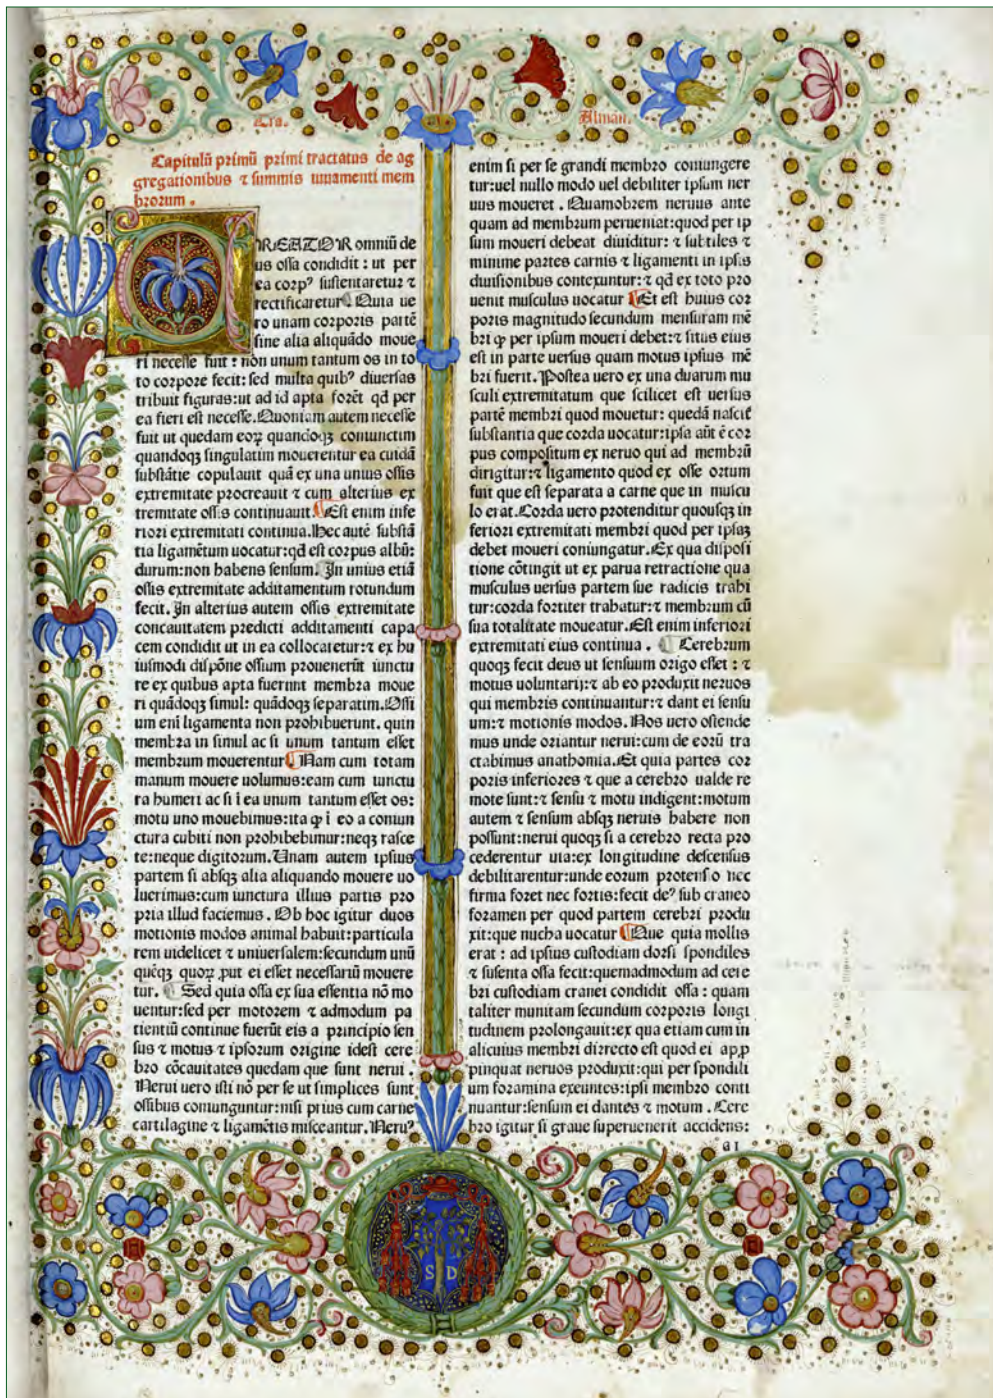 Tra.
Alman.
Capitulū primū primi tractatus de ag
gregationibus ⁊ summis iuuamenti mem
brorum .
CREATOR omniū de
us ossa condidit : ut per
ea corpꝰ sustentaretur ⁊
rectificaretur Quia ue
ro unam corporis partē
sine alia aliquādo moue
ri necesse fuit : non unum tantum os in to
to corpore fecit: sed multa quibꝰ diuersas
tribuit figuras: ut ad id apta forēt qd per
ea fieri est necesse. Quoniam autem necesse
fuit ut quedam eoꝝ quandoqꝫ coniunctim
quandoqꝫ singulatim mouerentur ea cuidā
substātie copulauit quā ex una unius ossis
extremitate procreauit ⁊ cum alterius ex
tremitate ossis continuauit Est enim infe
riori extremitati continua. Hec autē substā
tia ligamētum uocatur: qd est corpus albū:
durum: non habens sensum. In unius etiā
ossis extremitate additamentum rotundum
fecit. In alterius autem ossis extremitate
concauitatem predicti additamenti capa
cem condidit ut in ea collocaretur: ⁊ ex hu
iusmodi dispōne ossium prouenerūt iunctu
re ex quibus apta fuerunt membra moue
ri quādoqꝫ simul: quādoqꝫ separatim. Ossi
um eni ligamenta non prohibuerunt. quin
membra in simul ac si unum tantum esset
membrum mouerentur Nam cum totam
manum mouere uolumus: eam cum iunctu
ra humeri ac si i ea unum tantum esset os:
motu uno mouebimus: ita ꝙ i eo a coniun
ctura cubiti non prohibebimur: neqꝫ rasce
te: neque digitorum. Unam autem ipsius
partem si absqꝫ alia aliquando mouere uo
luerimus: cum iunctura illius partis pro
pria illud faciemus . Ob hoc igitur duos
motionis modos animal habuit: particula
rem uidelicet ⁊ uniuersalem: secundum unū
quēqꝫ quoꝝ ꝓut ei esset necessariū mouere
tur. Sed quia ossa ex sua essentia nō mo
uentur: sed per motorem ⁊ admodum pa
tientiū continue fuerūt eis a principio sen
sus ⁊ motus ⁊ ipsorum origine idest cere
bro cōcauitates quedam que sunt nerui .
Nerui uero isti nō per se ut simplices sunt
ossibus coniunguntur: nisi prius cum carne
cartilagine ⁊ ligamētis misceantur. Neruꝰ
enim si per se grandi membro coniungere
tur: uel nullo modo uel debiliter ipsum ner
uus moueret . Quamobrem neruus ante
quam ad membrum perueniat: quod per ip
sum moueri debeat diuiditur: ⁊ subtiles ⁊
minime partes carnis ⁊ ligamenti in ipsis
diuisionibus contexuntur: ⁊ qd ex toto pro
uenit musculus uocatur Et est huius cor
poris magnitudo secundum mensuram mē
bri ꝙ per ipsum moueri debet: ⁊ situs eius
est in parte uersus quam motus ipsius mē
bri fuerit. Postea uero ex una duarum mu
sculi extremitatum que scilicet est uersus
partē membri quod mouetur: quedā nascit̄
substantia que corda uocatur: ipsa aūt ē cor
pus compositum ex neruo qui ad membrū
dirigitur: ⁊ ligamento quod ex osse ortum
fuit que est separata a carne que in muscu
lo erat. Corda uero protenditur quousqꝫ in
feriori extremitati membri quod per ipsaꝫ
debet moueri coniungatur. Ex qua disposi
tione cōtingit ut ex parua retractione qua
musculus uersus partem sue radicis trahi
tur: corda fortiter trahatur: ⁊ membrum cū
sua totalitate moueatur. Est enim inferiori
extremitati eius continua . Cerebrum
quoqꝫ fecit deus ut sensuum origo esset : ⁊
motus uoluntarij: ⁊ ab eo produxit neruos
qui membris continuantur: ⁊ dant ei sensu
um: ⁊ motionis modos. Nos uero ostende
mus unde oriantur nerui: cum de eorū tra
ctabimus anathomia. Et quia partes cor
poris inferiores ⁊ que a cerebro ualde re
mote sunt: ⁊ sensu ⁊ motu indigent: motum
autem ⁊ sensum absqꝫ neruis habere non
possunt: nerui quoqꝫ si a cerebro recta pro
cederentur uia: ex longitudine descensus
debilitarentur: unde eorum protensio nec
firma foret nec fortis: fecit deꝰ sub craneo
foramen per quod partem cerebri produ
xit: que nucha uocatur Que quia mollis
erat : ad ipsius custodiam dorsi spondiles
⁊ susenta ossa fecit: quemadmodum ad cere
bri custodiam cranei condidit ossa : quam
taliter munitam secundum corporis longi
tudinem prolongauit: ex qua etiam cum in
alicuius membri directo est quod ei app
pinquat neruos produxit: qui per spondili
um foramina exeuntes: ipsi membro conti
nuantur: sensum ei dantes ⁊ motum . Cere
bro igitur si graue superuenerit accidens:
a1
S D